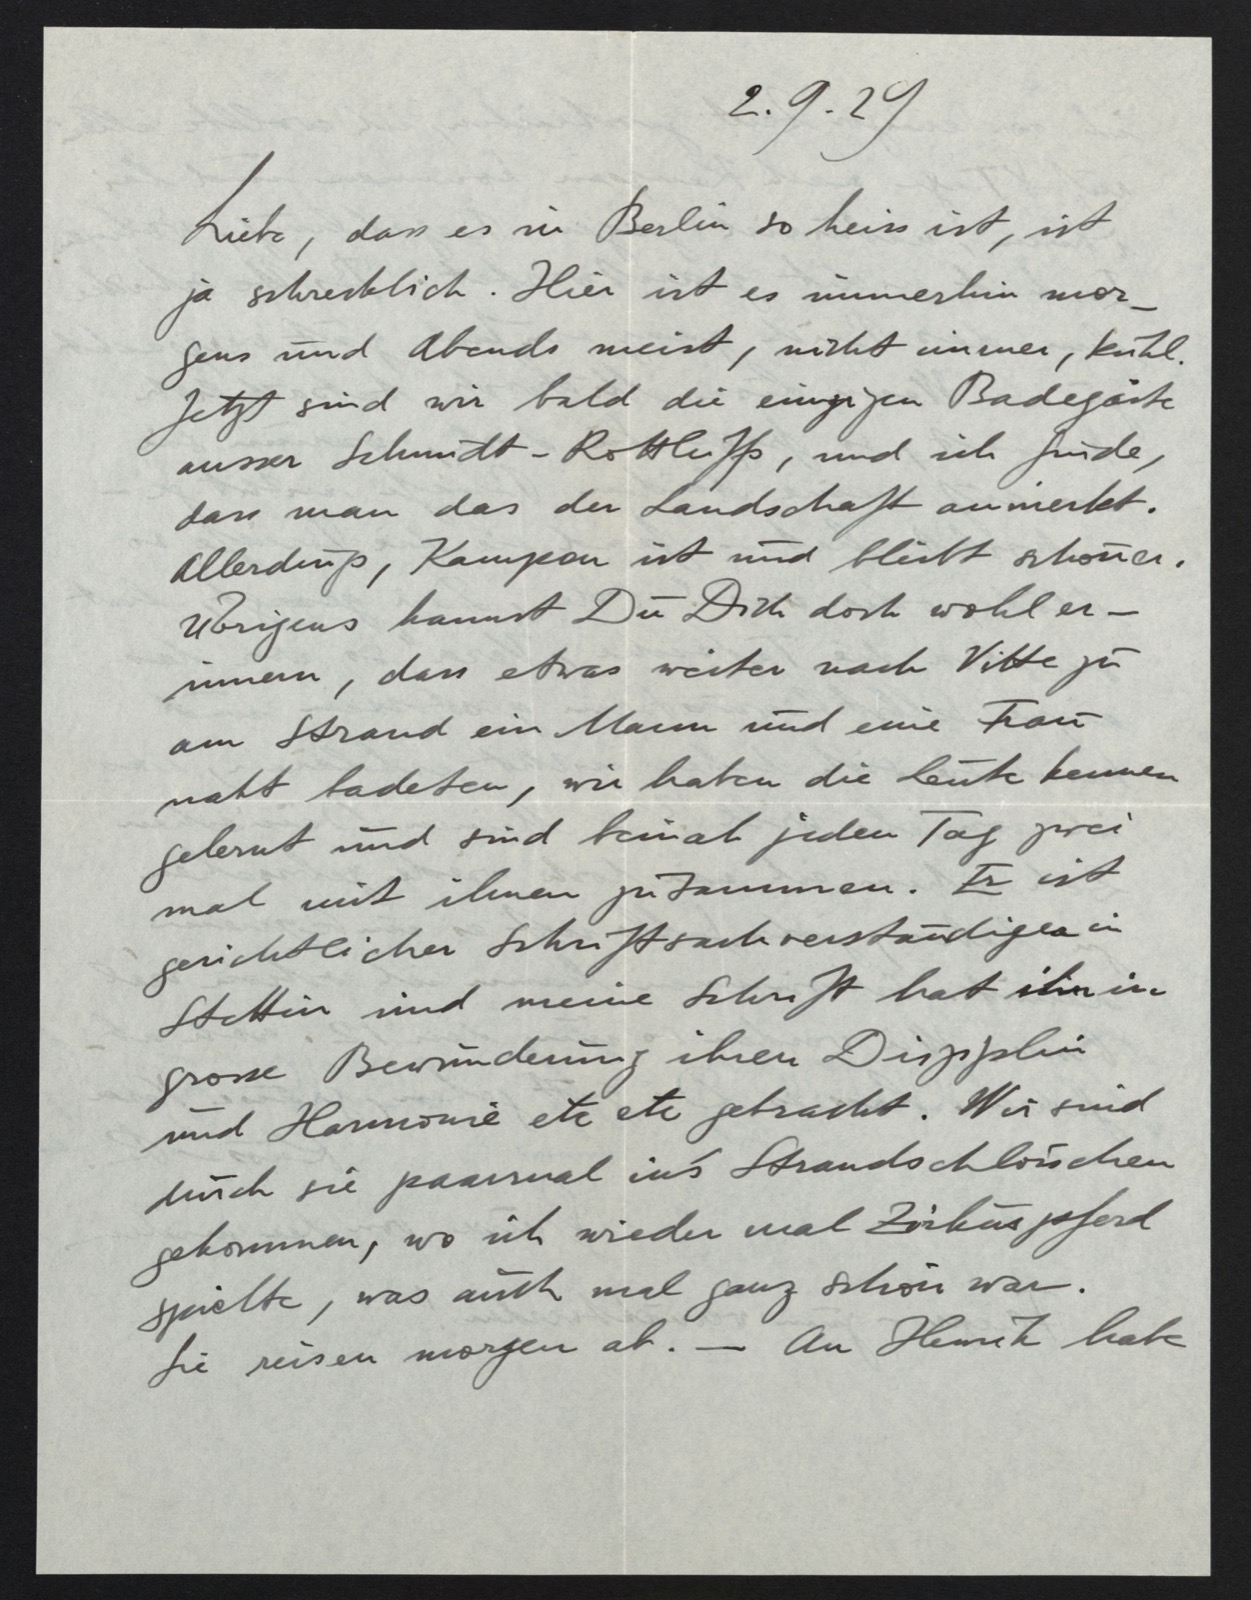 2.9.29
Liebe, dass es in Berlin so heiss ist, ist
ja schrecklich. Hier ist es immerhin mor-
gens und Abends meist, nicht immer, kühl.
Jetzt sind wir bald die einzigen Badegäste
ausser Schmidt-Rottluff, und ich finde,
dass man das der Landschaft anmerkt.
Allerdings, Kampen ist und bleibt schöner.
Übrigens kannst Du Dich doch wohl er-
innern, dass etwas weiter nach Vitte zu
am Strand ein Mann und eine Frau
nakt badeten, wir haben die Leute kennen
gelernt und sind beinah jeden Tag zwei
mal mit ihnen zusammen. Er ist
gerichtlicher Schriftsachverständiger in
Stettin und meine Schrift hat ihn in
grosse Bewunderung ihrer Diszpplin
und Harmonie etc etc gebracht. Wir sind
durch sie paarmal in's Strandschlösschen
gekommen, wo ich wieder mal Zirkuspferd
spielte, was auch mal ganz schön war.
Sie reisen morgen ab. — An Henrik habe